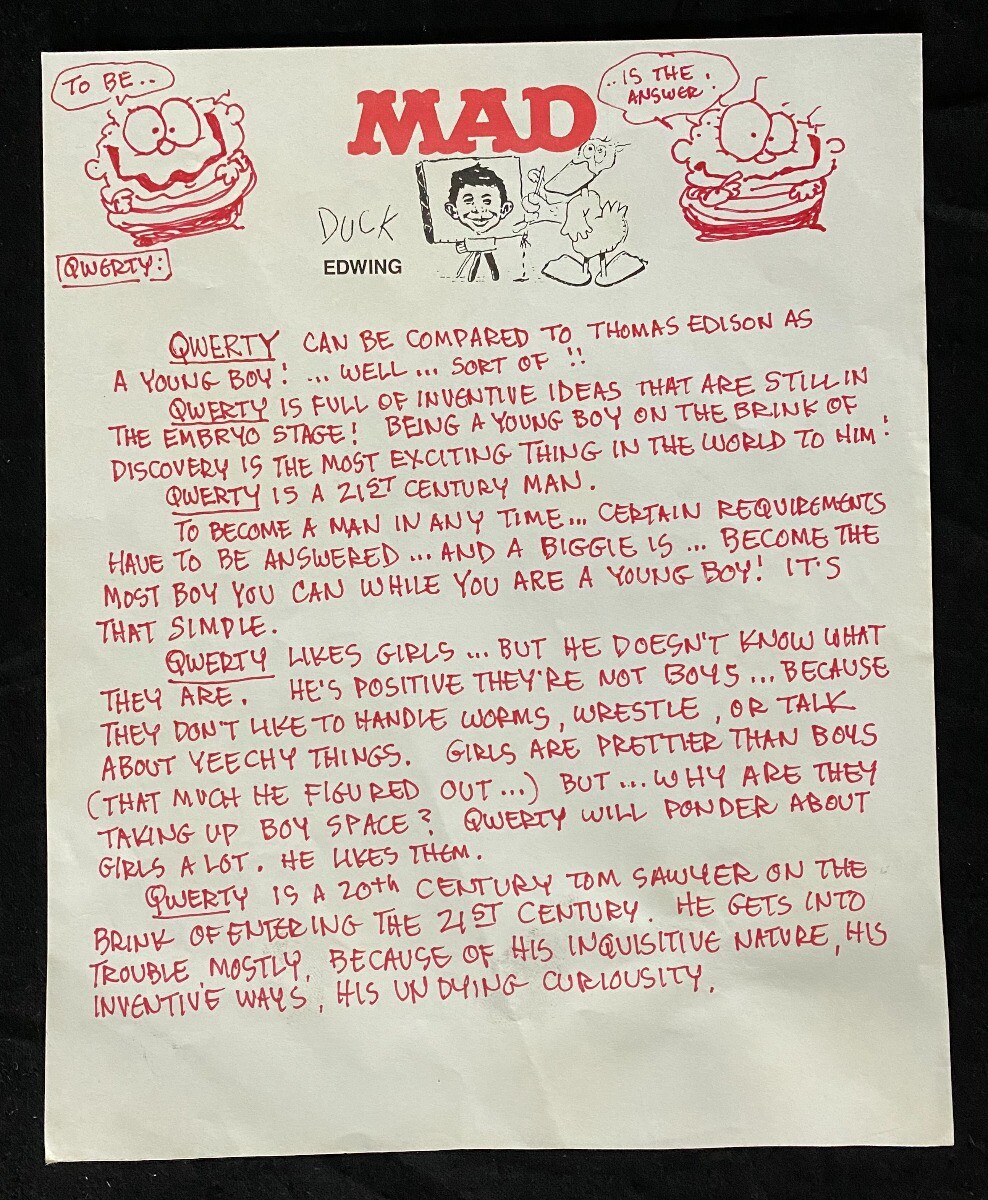 TO BE..
..IS THE
ANSWER!
MAD
DUCK
EDWING
QWERTY:
QWERTY CAN BE COMPARED TO THOMAS EDISON AS
A YOUNG BOY! ... WELL ... SORT OF !!
QWERTY IS FULL OF INVENTIVE IDEAS THAT ARE STILL IN
THE EMBRYO STAGE! BEING A YOUNG BOY ON THE BRINK OF
DISCOVERY IS THE MOST EXCITING THING IN THE WORLD TO HIM!
QWERTY IS A 21ST CENTURY MAN.
TO BECOME A MAN IN ANY TIME... CERTAIN REQUIREMENTS
HAVE TO BE ANSWERED ... AND A BIGGIE IS ... BECOME THE
MOST BOY YOU CAN WHILE YOU ARE A YOUNG BOY! IT'S
THAT SIMPLE.
QWERTY LIKES GIRLS ... BUT HE DOESN'T KNOW WHAT
THEY ARE. HE'S POSITIVE THEY'RE NOT BOYS ... BECAUSE
THEY DON'T LIKE TO HANDLE WORMS, WRESTLE, OR TALK
ABOUT YEECHY THINGS. GIRLS ARE PRETTIER THAN BOYS
(THAT MUCH HE FIGURED OUT...) BUT ... WHY ARE THEY
TAKING UP BOY SPACE? QWERTY WILL PONDER ABOUT
GIRLS A LOT. HE LIKES THEM.
QWERTY IS A 20th CENTURY TOM SAWYER ON THE
BRINK OF ENTERING THE 21ST CENTURY. HE GETS INTO
TROUBLE, MOSTLY, BECAUSE OF HIS INQUISITIVE NATURE, HIS
INVENTIVE WAYS, HIS UNDYING CURIOUSITY.